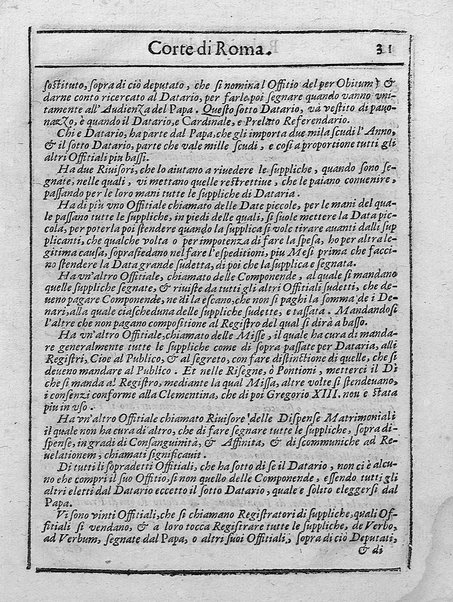 Corte di Roma. 31
sostituto, sopra di ciò deputato, che si nomina l'Offitio del per Obitum; &
darne conto ricercato al Datario, per farle poi segnare quando vanno vni-
tamente all'Audienza del Papa. Questo sotto Datario, va vestito di pauo-
nazzo, è quando il Datario, e Cardinale, e Prelato Referendario.
Chi e Datario, ha parte dal Papa, che gli importa due mila scudi l'Anno,
& il sotto Datario, parte che vale mille scudi, e così a proportione tutti gli
altri Offitiali piu bassi.
Ha due Riuisori, che lo aiutano a riuedere le suppliche, quando sono se-
gnate, nelle quali, vi mettano quelle restrettiue, che le paiano conuenire,
passando per le loro mani tutte le suppliche di Dataria.
Ha di piu vno Offitiale chiamato delle Date piccole, per le mani del qua-
le passano tutte le suppliche, in piedi delle quali, si suole mettere la Data pic-
cola, per poterla poi stendere quando la supplica si vole tirare auanti dalli sup
plicanti, che qualche volta o per impotenza di fare la spesa, ho per altra le-
gitima causa, soprasiedano nel fare l'espeditioni, piu Mesi prima che facci-
no stendere la Data grande sudetta, di poi che la supplica e segnata.
Ha vn'altro Offitiale, chiamato delle Componende, al quale si mandano
quelle suppliche segnate, & riuiste da tutti gli altri Offitiali sudetti, che de-
ueno pagare Componende, ne di la escano, che non si paghi la somma de i De-
nari, alla quale ciascheduna delle suppliche sudette, e tassata. Mandandosi
l'altre che non pagano compositione al Registro del qual si dirà a basso.
Ha vn'altro Offitiale, chiamato delle Misse, il quale ha cura di manda-
re generalmente tutte le suppliche come di sopra passate per Dataria, alli
Registri, Cioe al Publico, & al segreto, con fare distinctione di quelle, che si
deueno mandare al Publico. Et nelle Risegne, ò Pontioni, metterci il Dì
che si manda al Registro, mediante la qual Missa, altre volte si stendeuano,
i consensi conforme alla Clementina, che di poi Gregorio XIII. non e stata
piu in vso.
Ha vn'altro Offitiale chiamato Riuisore delle Dispense Matrimoniali
il quale non ha cura di altro, che di fare segnare tutte le suppliche, sopra di-
spense, in gradi di Consanguinità, & Affinità, & di scommuniche ad Re-
uelationem, chiamati significauit.
Di tutti li sopradetti Offitiali, che ha sotto di se il Datario, non ci è alcu-
no che compri il suo Offitio, si non quello delle Componende, essendo tutti gli
altri eletti dal Datario eccetto il sotto Datario, quale e solito eleggersi dal
Papa.
Vi sono vinti Offitiali, che si chiamano Registratori di suppliche, quali Of-
fitiali si vendano, & a loro tocca Registrare tutte le suppliche, de Verbo,
ad Verbum, segnate dal Papa, o altri suoi Offitiali, sopra di ciò Deputati,
& di